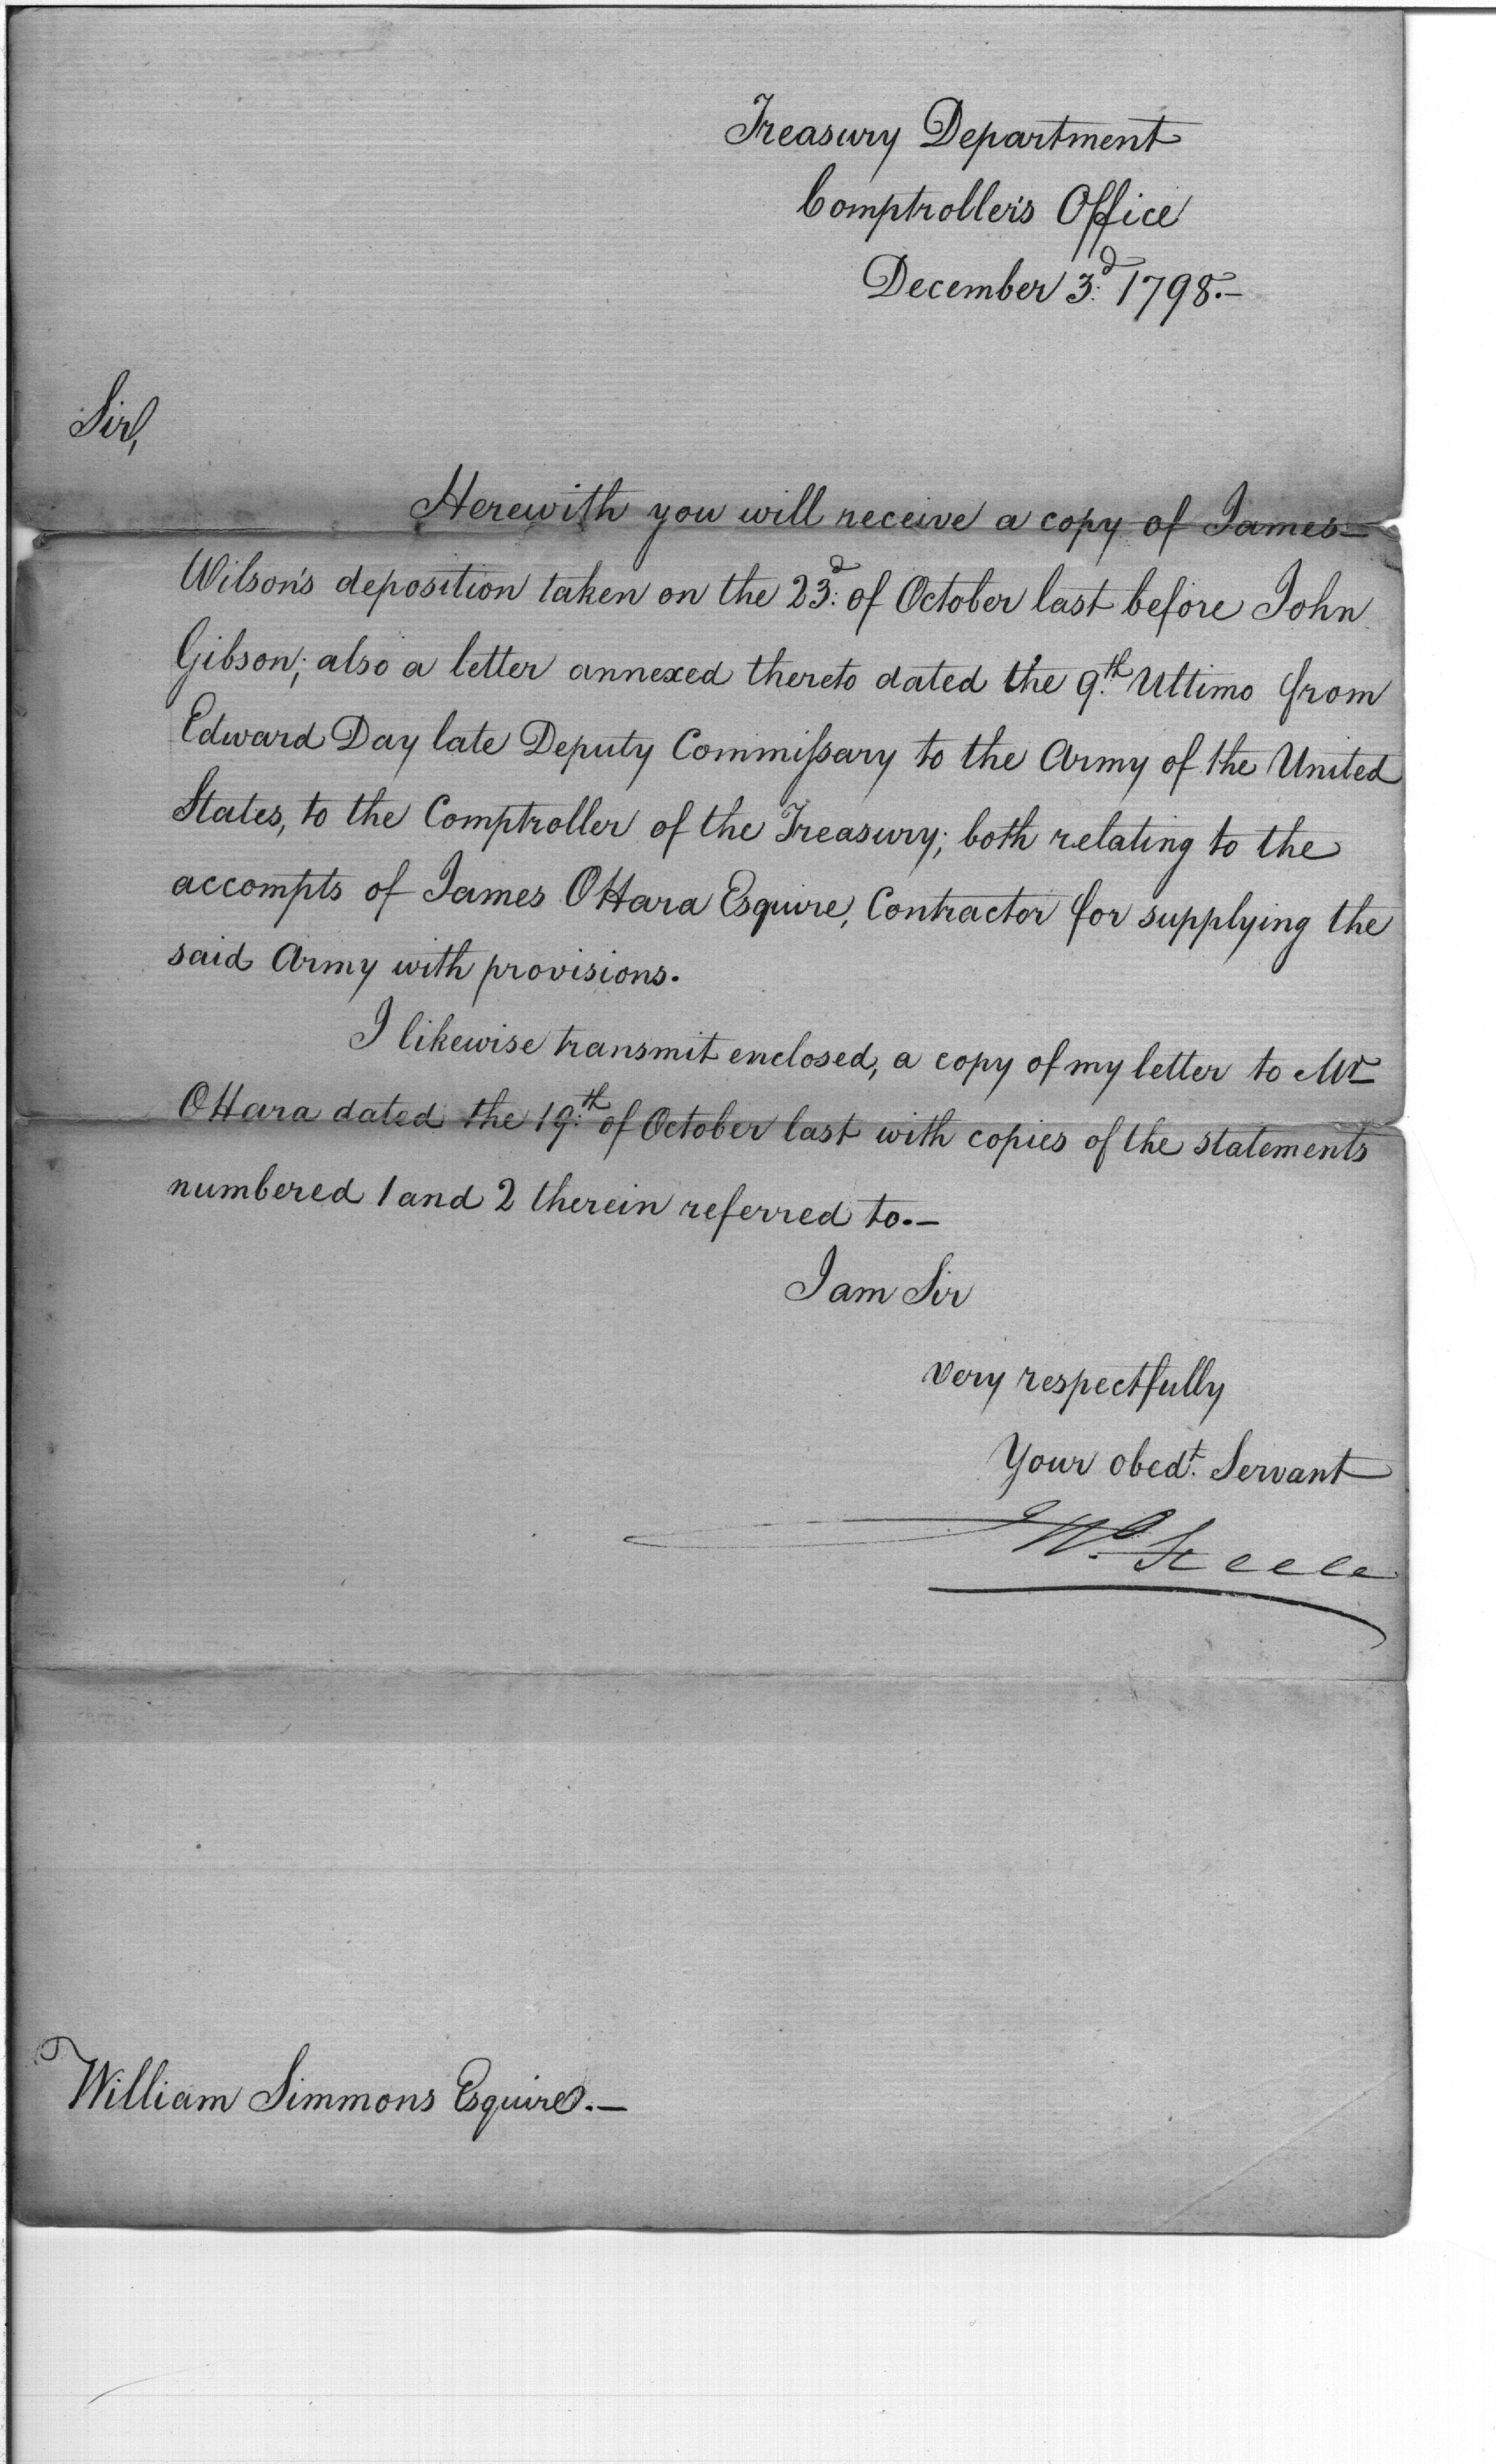 Treasury Department
Comptroller's Office
December 3d. 1798.—
Sir,
Herewith you will receive a copy of James
Wilson's deposition taken on the 23d. of October last before John
Gibson; also a letter annexed thereto dated the 9th. Ultimo from
Edward Day late Deputy Commissary to the Army of the United
States, to the Comptroller of the Treasury; both relating to the
accompts of James OHara Esquire, Contractor for supplying the
said Army with provisions.
I likewise transmit enclosed, a copy of my letter to Mr
OHara dated the 19th. of October last with copies of the statements
numbered 1 and 2 therein referred to.—
I am Sir
very respectfully
Your obedt. Servant
Steele
William Simmons Esquire.—